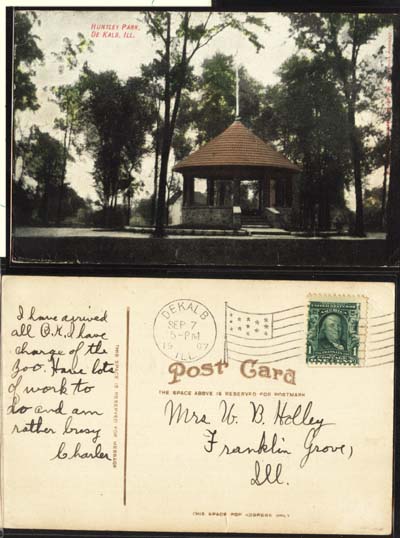 HUNTLEY PARK,
DE KALB, ILL.
I have arrived
all O.K. I have
charge of the
Zoo. Have lots
of work to
do and am
rather busy
Charles
THIS SPACE IS RESERVED FOR MESSAGE
DEKALB
SEP 7
5-PM
1907
ILL.
Post Card
THE SPACE ABOVE IS RESERVED FOR POSTMARK
Mrs W. B. Holley
Franklin Grove,
Ill.
THIS SPACE FOR ADDRESS ONLY